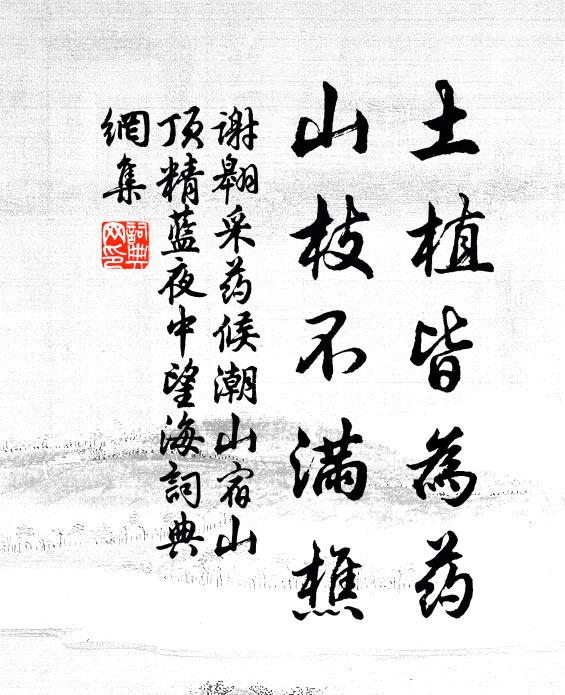 土植皆為药
山枝不满樵
谢翱采药候潮山宿山
顶精蓝夜中望海詞典
網集
詞典
网印